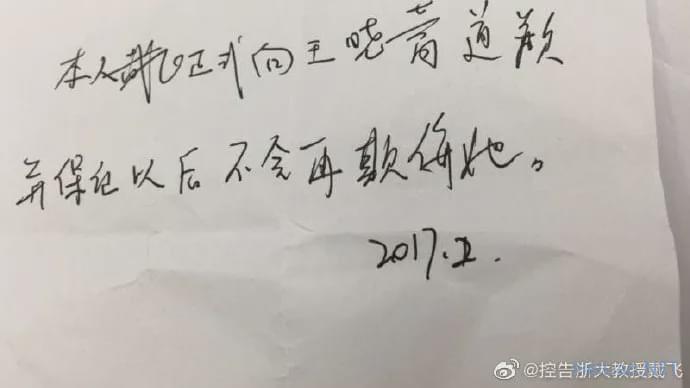 本人戴飞正式向王晓蕾道歉
并保证以后不会再欺侮她。
2017.2.
@控告浙大教授戴飞